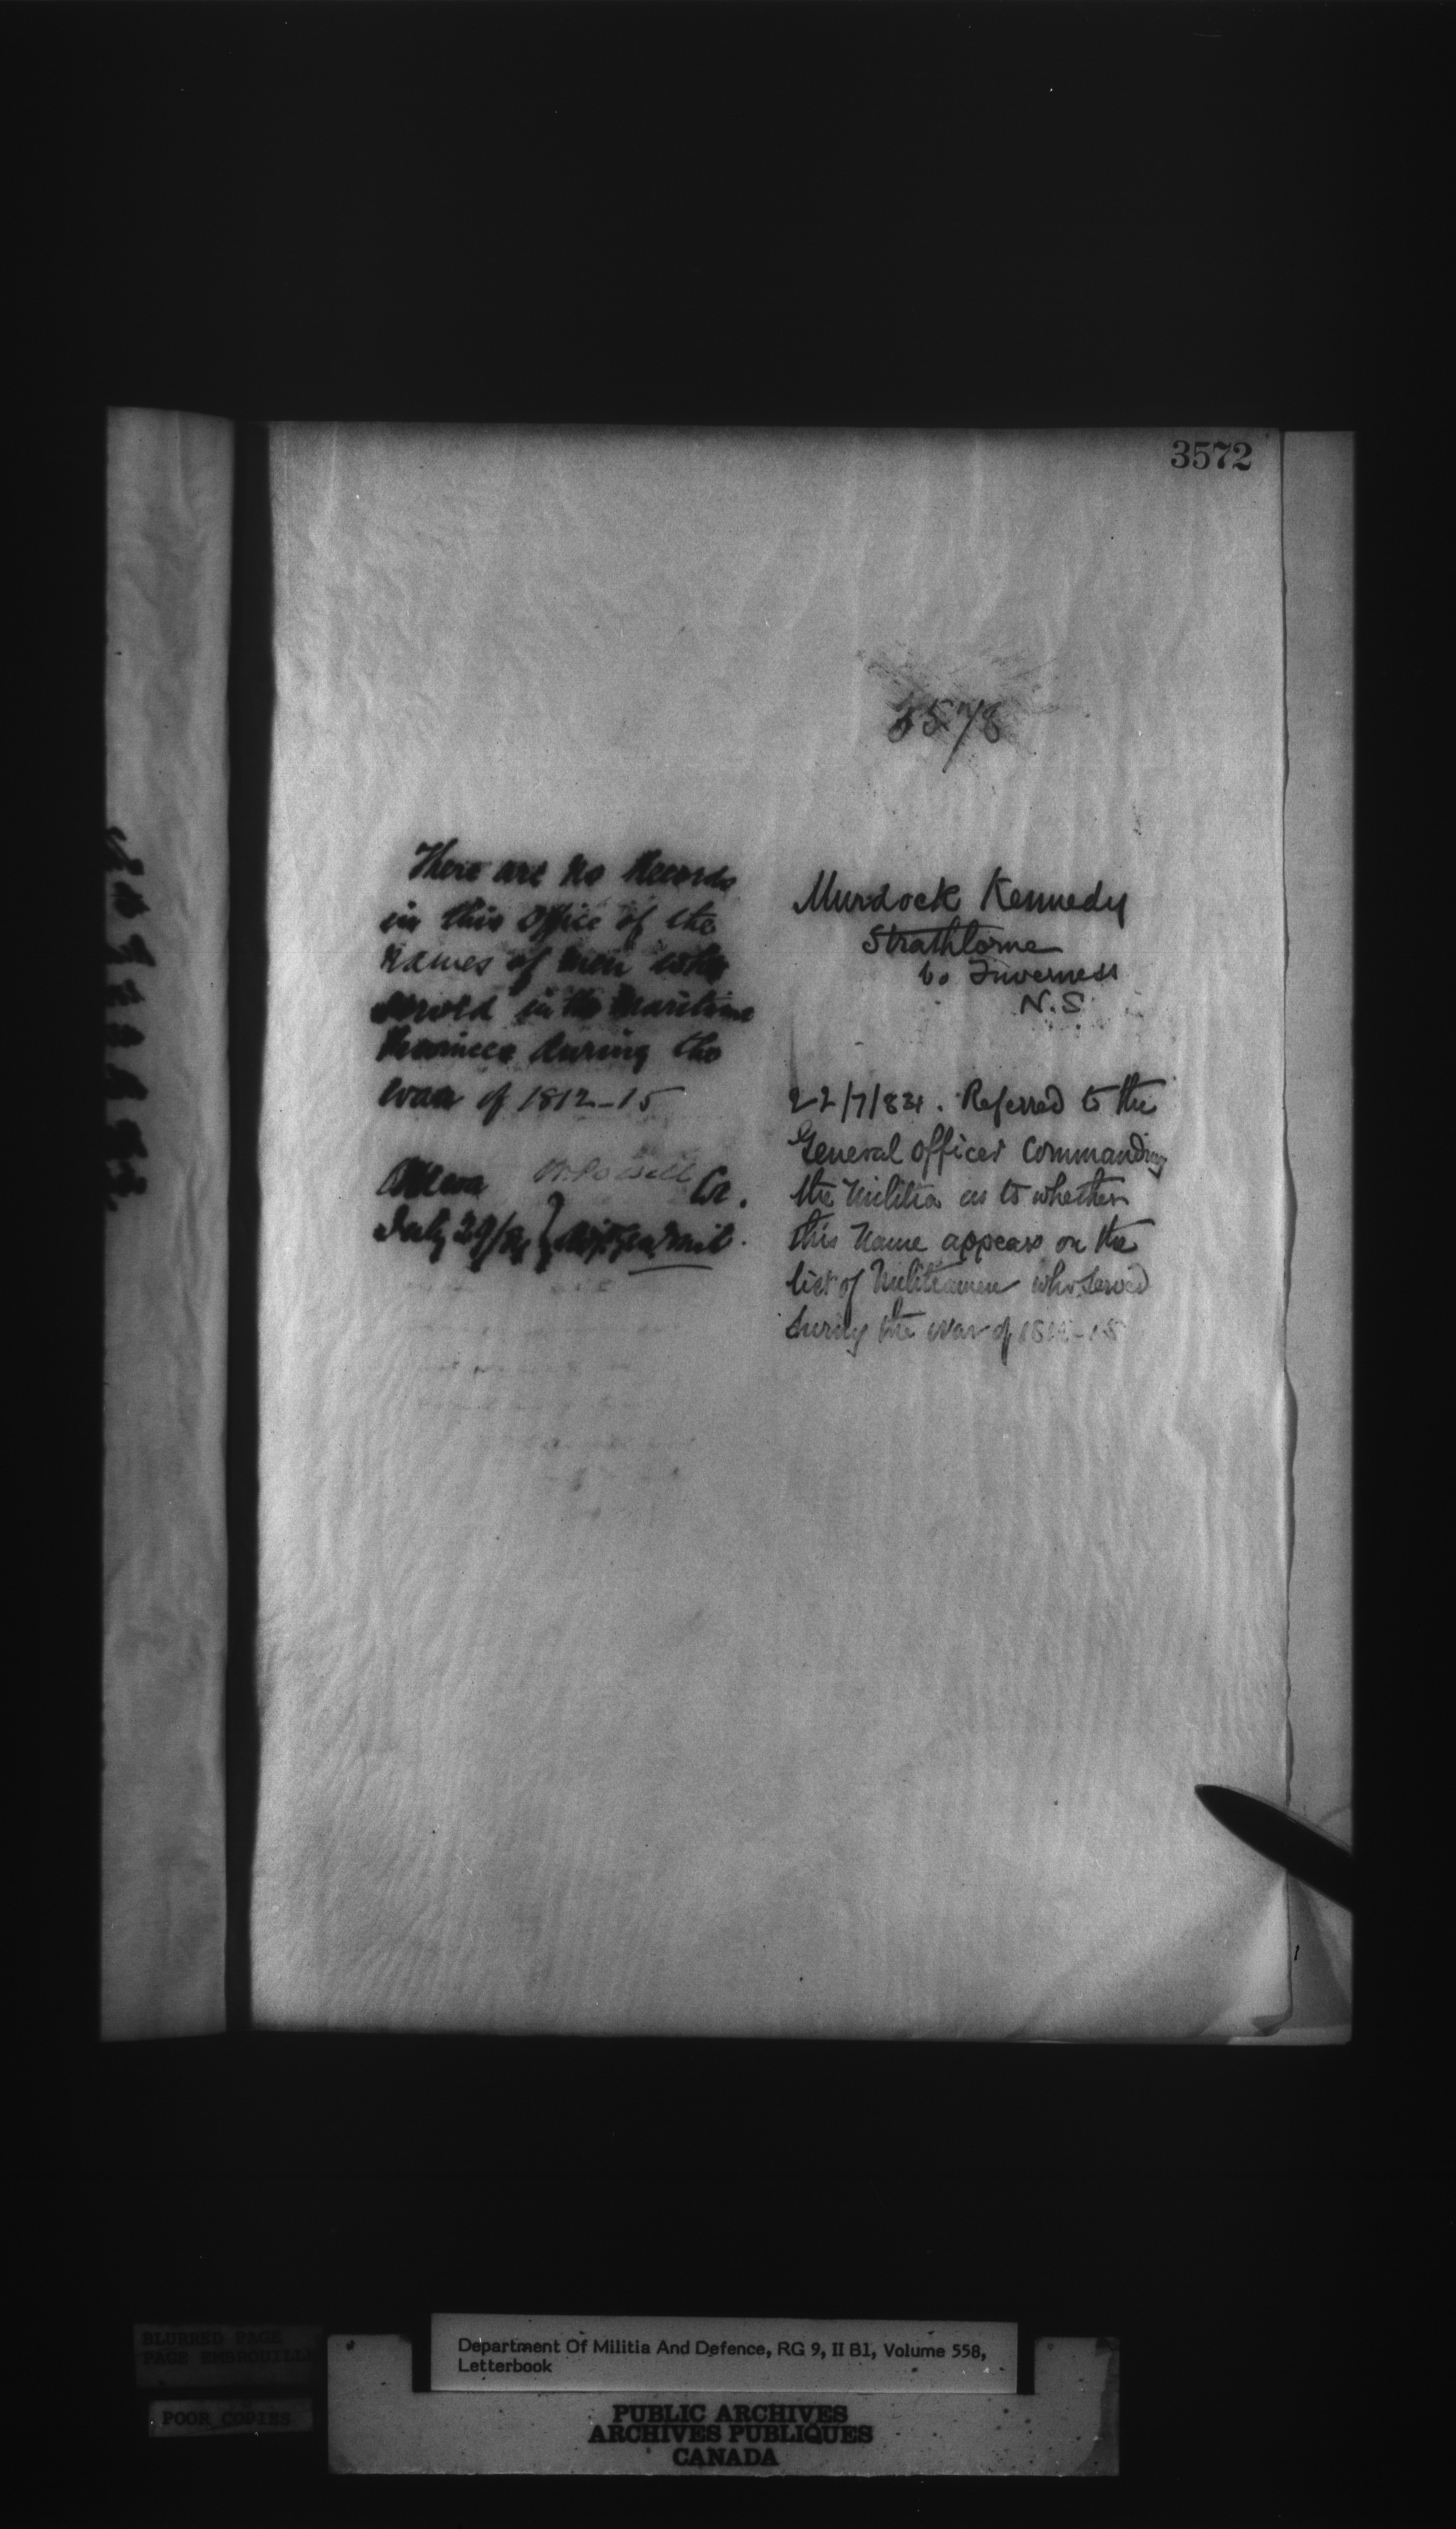 3572
There are no Records
in this Office of the
names of men who
served in the Maritime
Provinces during the
war of 1812-15
Ottawa W. Powell Col.
July 29/84 } Adjt Gen. Mil.
Murdock Kennedy
Strathlorne
Co Inverness
N.S.
22/7/84. Referred to the
General officer Commanding
the Militia as to whether
this name appears on the
list of Militiamen who served
during the War of 1812-15
BLURRED PAGE
PAGE EMBROUILLE
POOR COPIES
Department Of Militia And Defence, RG 9, II B1, Volume 558,
Letterbook
PUBLIC ARCHIVES
ARCHIVES PUBLIQUES
CANADA